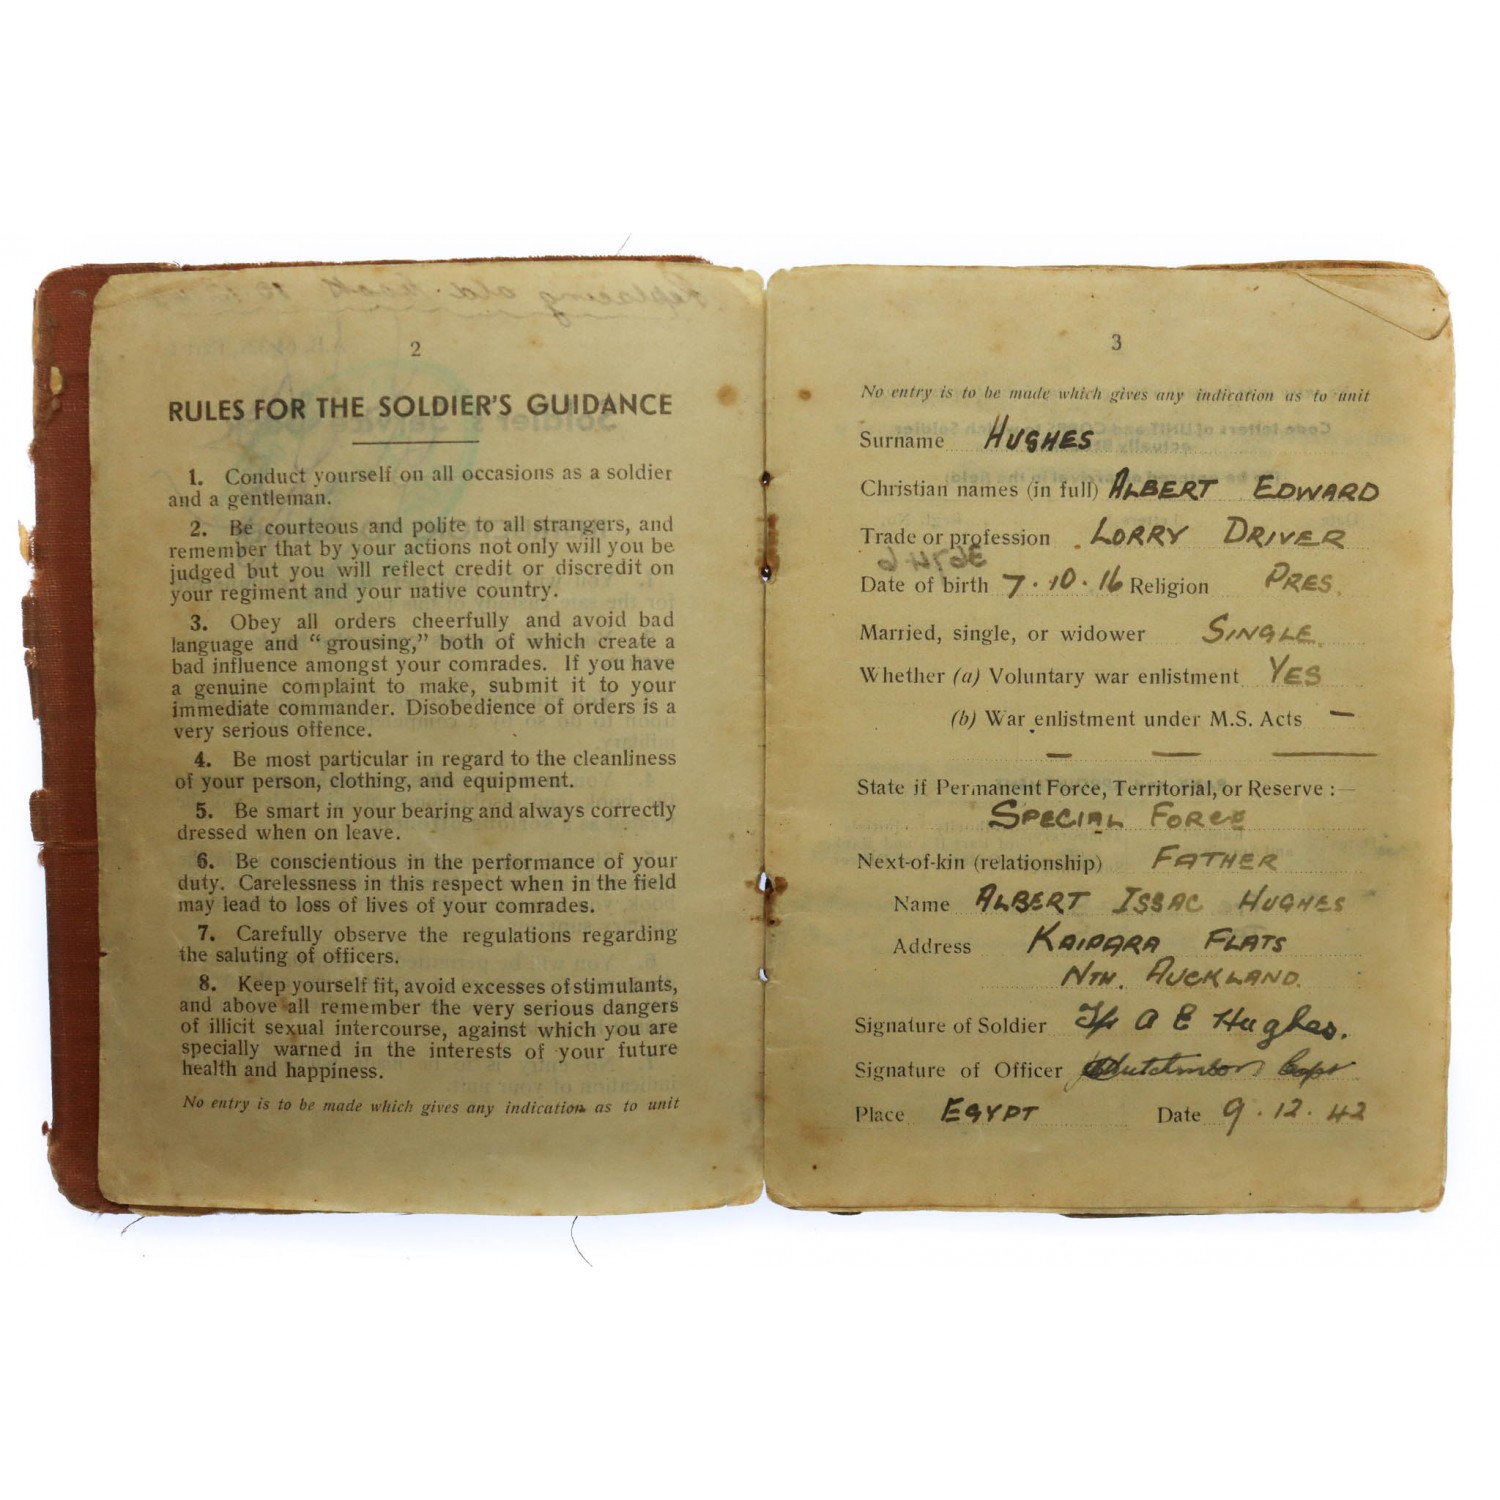 2
RULES FOR THE SOLDIER'S GUIDANCE
1. Conduct yourself on all occasions as a soldier
and a gentleman.
2. Be courteous and polite to all strangers, and
remember that by your actions not only will you be
judged but you will reflect credit or discredit on
your regiment and your native country.
3. Obey all orders cheerfully and avoid bad
language and "grousing," both of which create a
bad influence amongst your comrades. If you have
a genuine complaint to make, submit it to your
immediate commander. Disobedience of orders is a
very serious offence.
4. Be most particular in regard to the cleanliness
of your person, clothing, and equipment.
5. Be smart in your bearing and always correctly
dressed when on leave.
6. Be conscientious in the performance of your
duty. Carelessness in this respect when in the field
may lead to loss of lives of your comrades.
7. Carefully observe the regulations regarding
the saluting of officers.
8. Keep yourself fit, avoid excesses of stimulants,
and above all remember the very serious dangers
of illicit sexual intercourse, against which you are
specially warned in the interests of your future
health and happiness.
No entry is to be made which gives any indication as to unit
3
No entry is to be made which gives any indication as to unit
Surname HUGHES
Christian names (in full) ALBERT EDWARD
Trade or profession LORRY DRIVER
Date of birth 7.10.16 Religion PRES.
Married, single, or widower SINGLE.
Whether (a) Voluntary war enlistment YES
(b) War enlistment under M.S. Acts —
— — —
State if Permanent Force, Territorial, or Reserve :—
SPECIAL FORCE
Next-of-kin (relationship) FATHER
Name ALBERT ISSAC HUGHES
Address KAIPARA FLATS
NTH. AUCKLAND.
Signature of Soldier A E Hughes.
Signature of Officer Capt
Place EGYPT Date 9.12.42